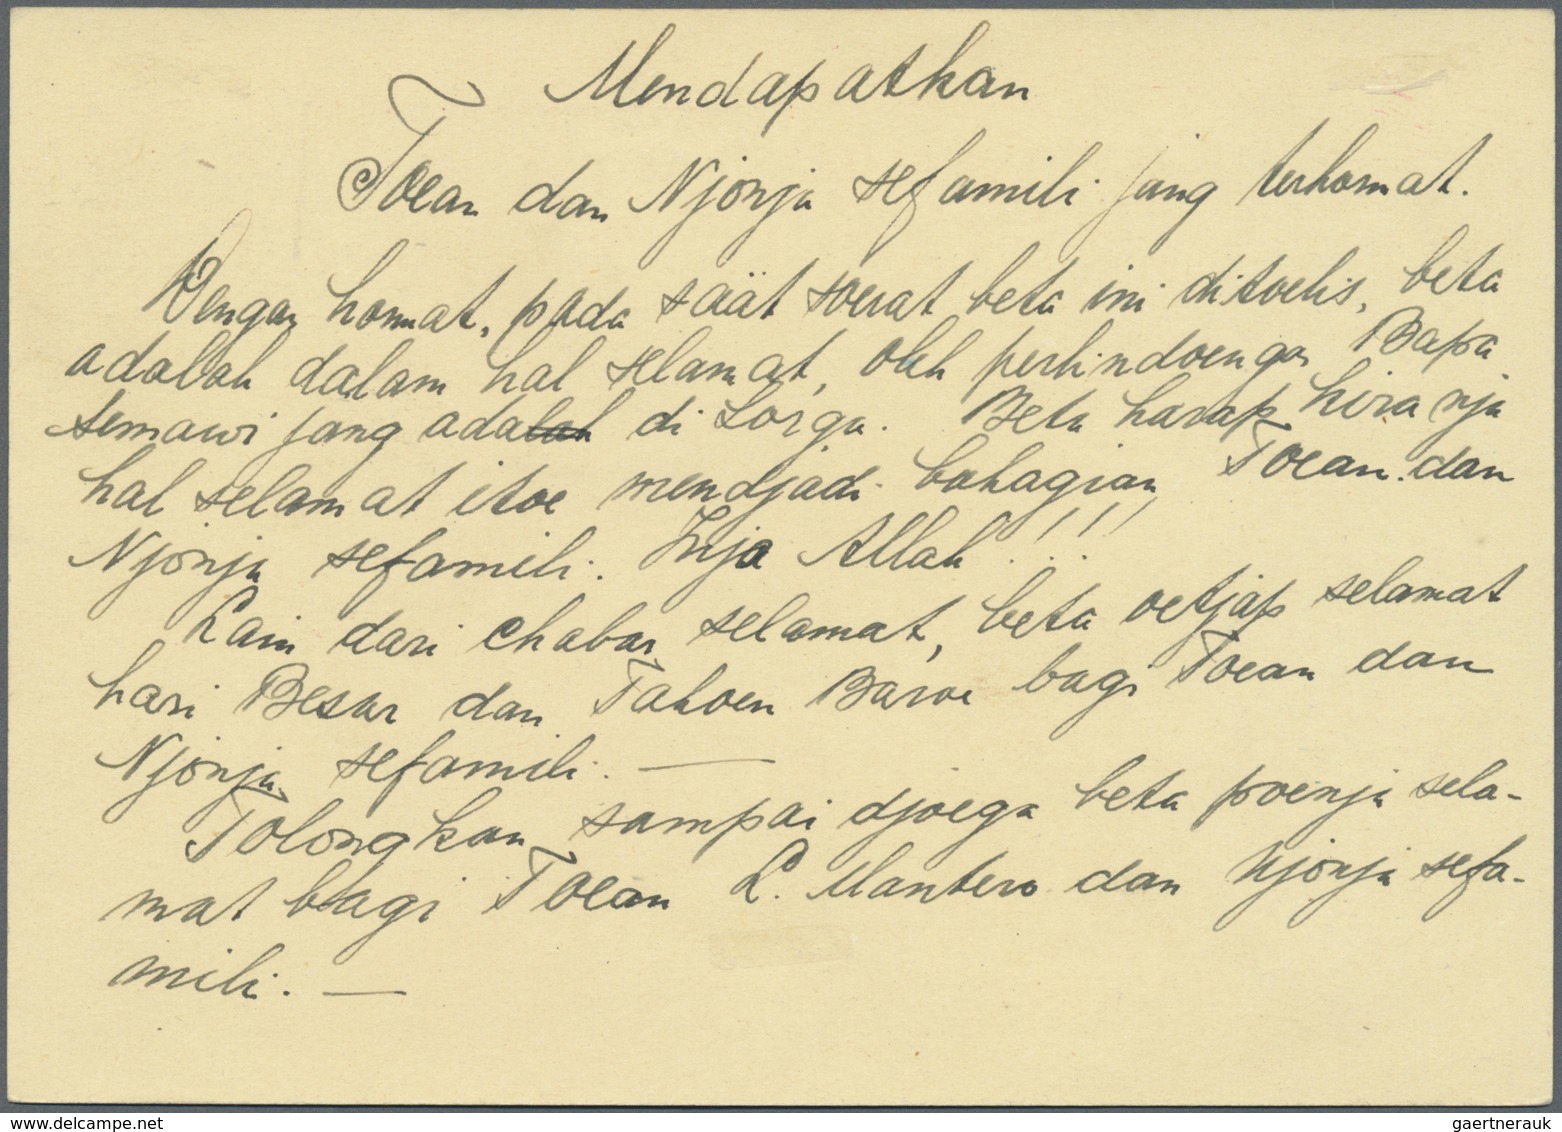 Mendapatkan
Toean dan Njonja sefamili jang terhormat.
Dengan hormat, pada säät soerat beta ini ditoelis, beta
adalah dalam hal selamat, oleh perlindoengan Bapa
semawi jang adalah di Sorga. Beta harap kiranja
hal selamat itoe mendjadi bahagian Toean dan
Njonja sefamili. Insja Allah!!!
Lain dari chabar selamat, beta oetjap selamat
hari Besar dan Tahoen Baroe bagi Toean dan
Njonja sefamili. —
Tolongkan sampai djoega beta poenja sela-
mat bagi Toean L. Mantero dan Njonja sefa-
mili. —
www.delcampe.net
gaertnerauk